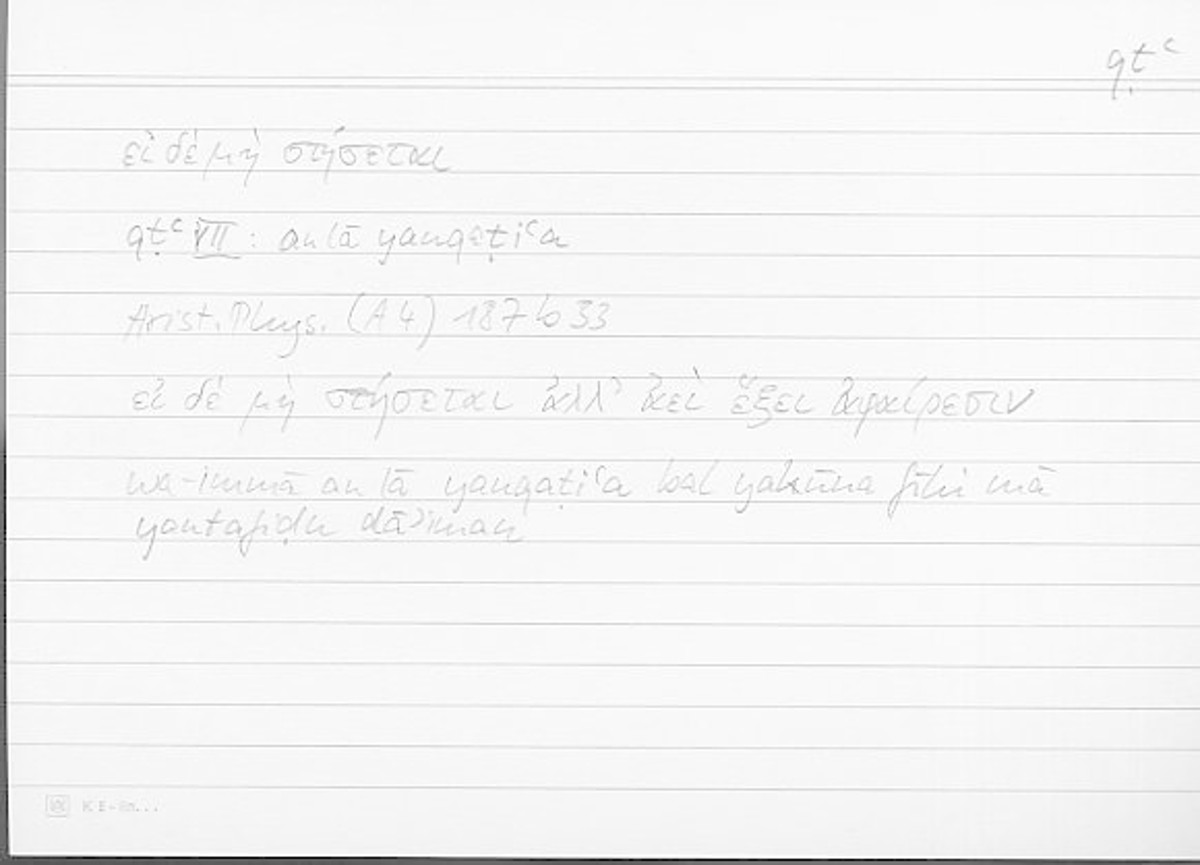 qṭʿ
εἰ δὲ μὴ στήσεται
qṭʿ VII : an lā yanqaṭiʿa
Arist. Phys. (A 4) 187 b 33
εἰ δὲ μὴ στήσεται ἀλλ' ἀεὶ ἕξει ἀφαίρεσιν
wa-immā an lā yanqaṭiʿa bal yakūna fīhi mā
yantafiḍu dāʾiman